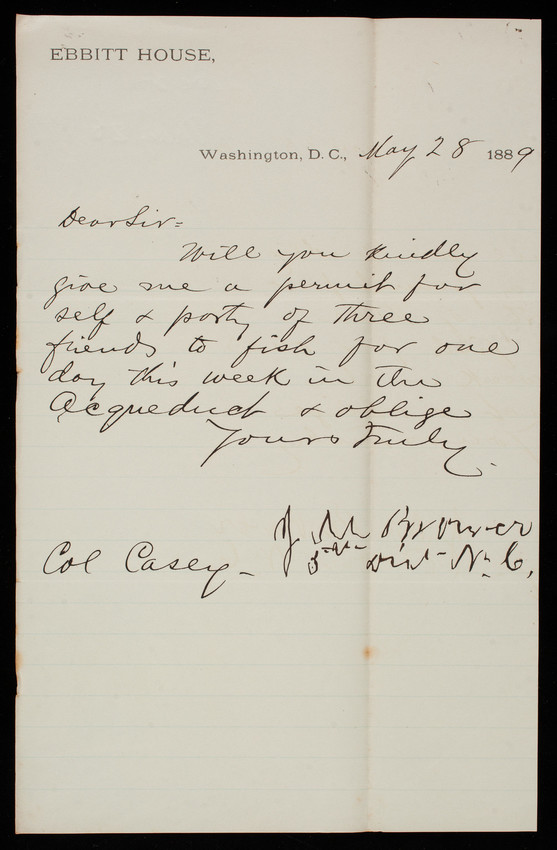 EBBITT HOUSE,
Washington, D. C., May 28 1889
Dear Sir=
Will you kindly
give me a permit for
self & party of three
fiends to fish for one
day this week in the
Acqueduct & oblige
Yours Truly
J M Brower
5th Dist N. C,
Col Casey -